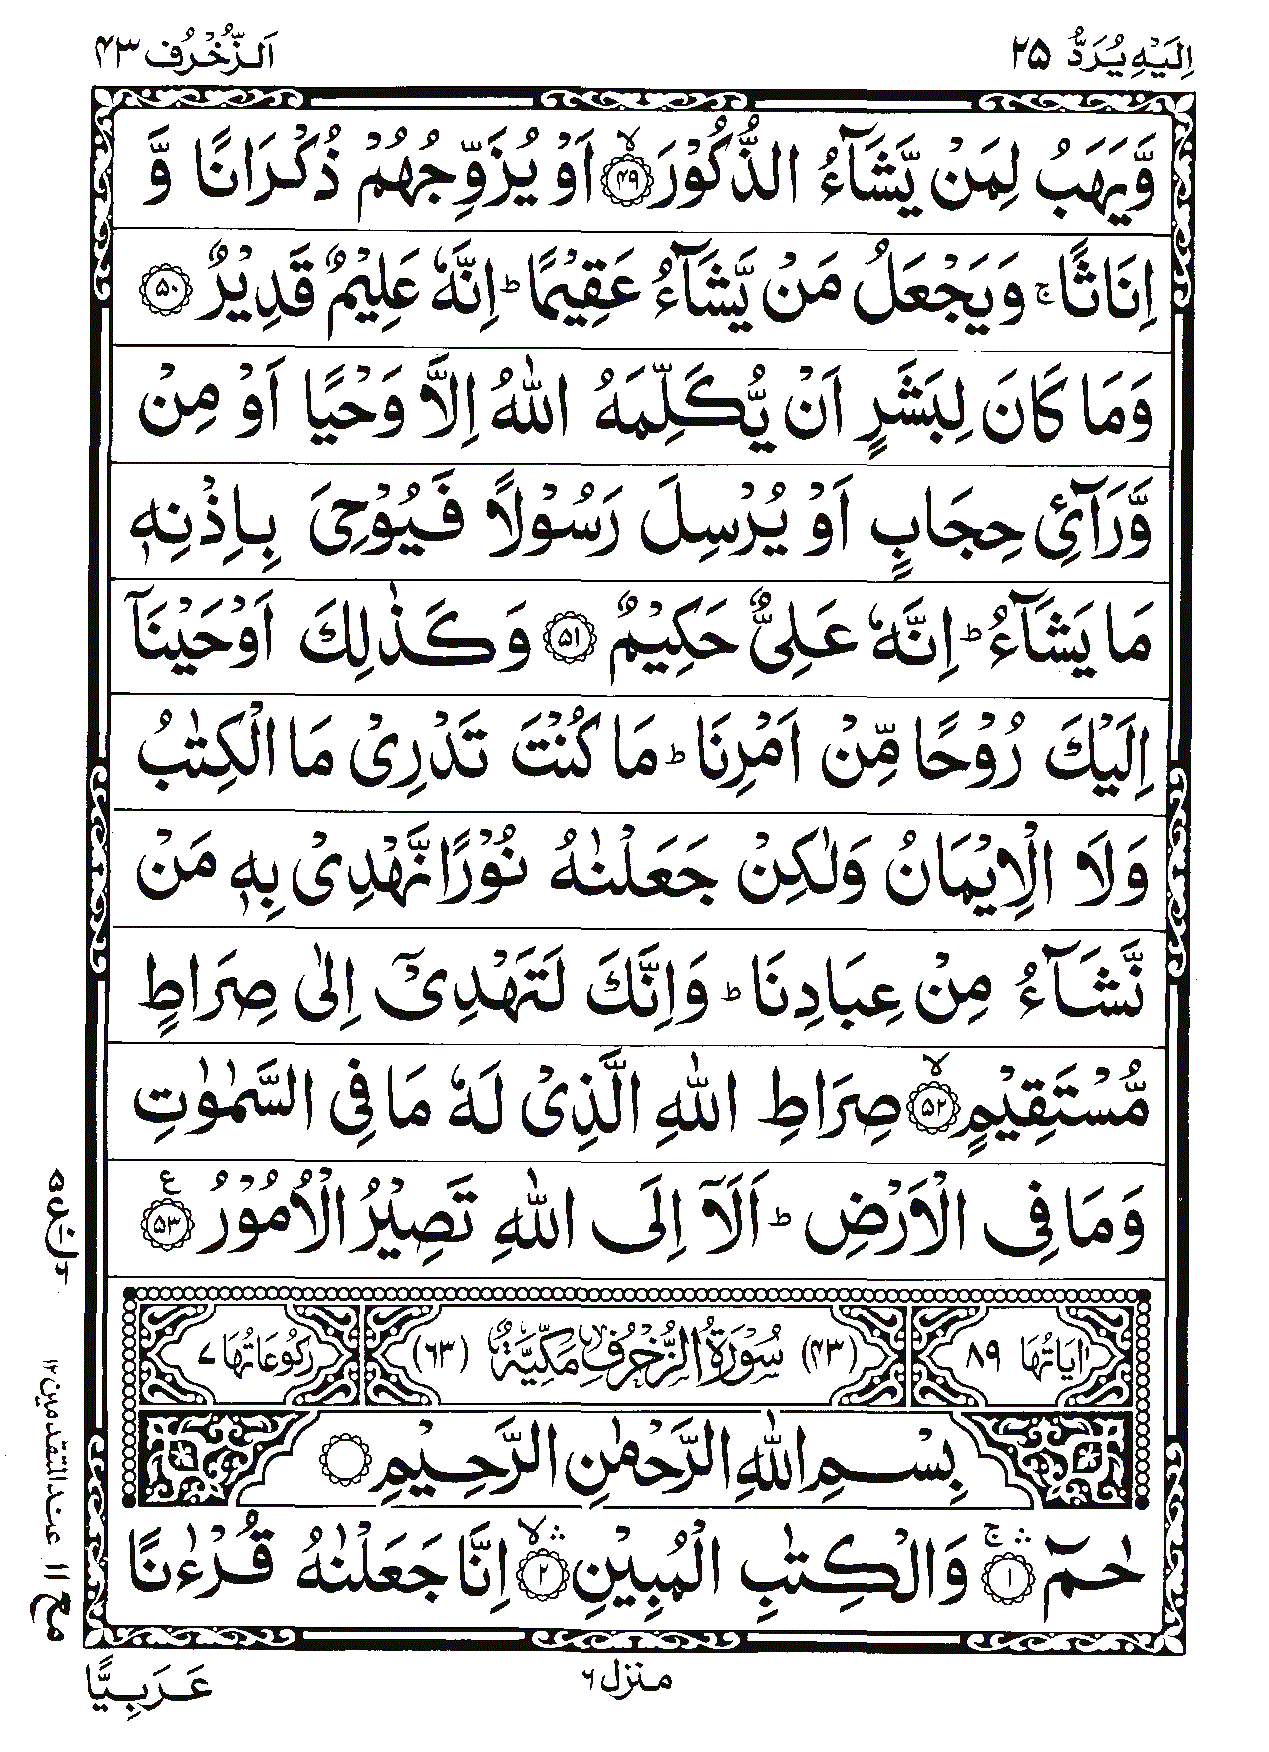 اِلَیْهِ یُرَدُّ ۲۵
اَلزُّخْرُف ۴۳
وَّیَهَبُ لِمَنْ یَّشَآءُ الذُّكُوْرَ ۙ﴿۴۹﴾ اَوْ یُزَوِّجُهُمْ ذُكْرَانًا وَّ
اِنَاثًا ۚ وَیَجْعَلُ مَنْ یَّشَآءُ عَقِیْمًا ؕ اِنَّهٗ عَلِیْمٌ قَدِیْرٌ ﴿۵۰﴾
وَمَا كَانَ لِبَشَرٍ اَنْ یُّكَلِّمَهُ اللّٰهُ اِلَّا وَحْیًا اَوْ مِنْ
وَّرَآئِ حِجَابٍ اَوْ یُرْسِلَ رَسُوْلًا فَیُوْحِیَ بِاِذْنِهٖ
مَا یَشَآءُ ؕ اِنَّهٗ عَلِیٌّ حَكِیْمٌ ﴿۵۱﴾ وَكَذٰلِكَ اَوْحَیْنَاۤ
اِلَیْكَ رُوْحًا مِّنْ اَمْرِنَا ؕ مَا كُنْتَ تَدْرِیْ مَا الْكِتٰبُ
وَلَا الْاِیْمَانُ وَلٰكِنْ جَعَلْنٰهُ نُوْرًا نَّهْدِیْ بِهٖ مَنْ
نَّشَآءُ مِنْ عِبَادِنَا ؕ وَاِنَّكَ لَتَهْدِیْۤ اِلٰی صِرَاطٍ
مُّسْتَقِیْمٍ ۙ﴿۵۲﴾ صِرَاطِ اللّٰهِ الَّذِیْ لَهٗ مَا فِی السَّمٰوٰتِ
وَمَا فِی الْاَرْضِ ؕ اَلَاۤ اِلَی اللّٰهِ تَصِیْرُ الْاُمُوْرُ ﴿۵۳﴾ ع
اٰیَاتُهَا ۸۹ (۴۳) سُوْرَةُ الزُّخْرُفِ مَكِّیَّةٌ (۶۳) رُكُوْعَاتُهَا ۷
بِسْمِ اللّٰهِ الرَّحْمٰنِ الرَّحِیْمِ
حٰمٓ ۚۛ﴿۱﴾ وَالْكِتٰبِ الْمُبِیْنِ ۙۛ﴿۲﴾ اِنَّا جَعَلْنٰهُ قُرْءٰنًا
منزل ۶
عَرَبِیًّا
مع ۱۱ عند المتقدمین ۱۲